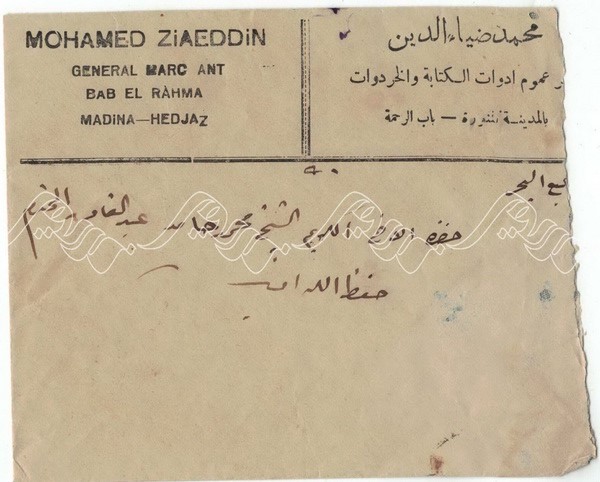 MOHAMED ZiAEDDiN
GENERAL MARC ANT
BAB EL RAHMA
MADiNA—HEDJAZ
محمد ضياء الدين
عموم ادوات الكتابة والخردوات
بالمدينة المنورة — باب الرحمة
ينبع البحر
حضرة الاخ الكريم الشيخ محمد حامد عبد القادر المحترم
حفظه الله امين